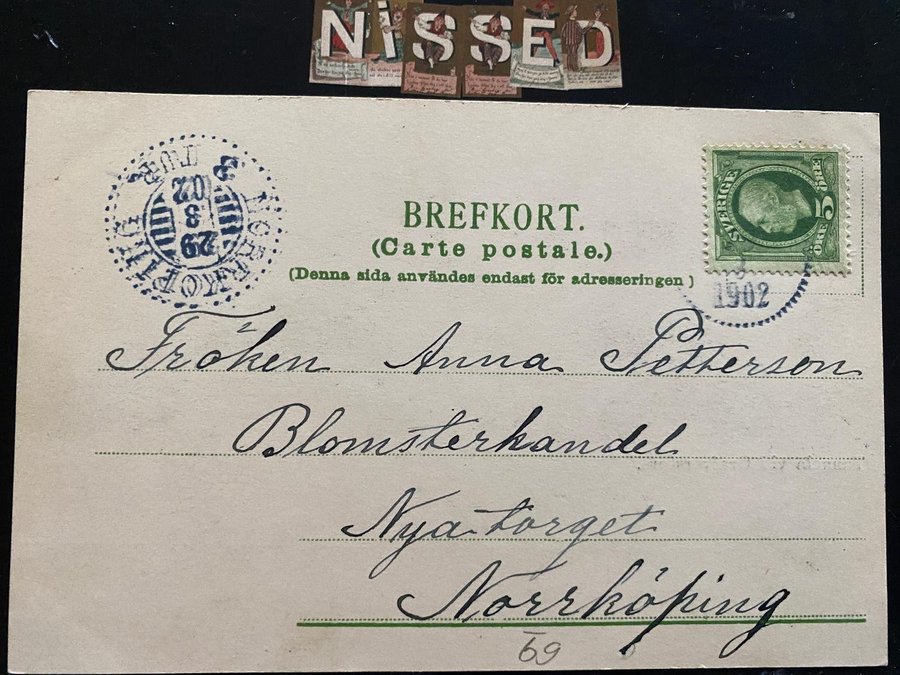 NISSED
BREFKORT.
(Carte postale.)
(Denna sida användes endast för adresseringen)
NORRKÖPING
3 TUR
29
3
02
SVERIGE
5
ÖRE
1902
Fröken Anna Petterson
Blomsterhandel
Nya torget
Norrköping
69